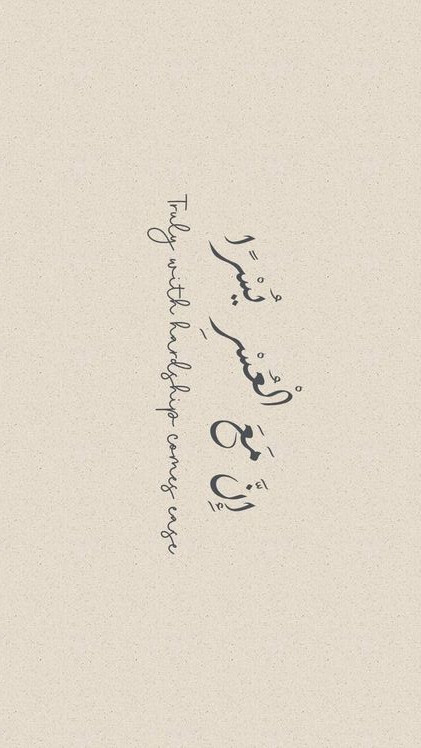 إِنَّ مَعَ الْعُسْرِ يُسْرًا
Truly with hardship comes ease